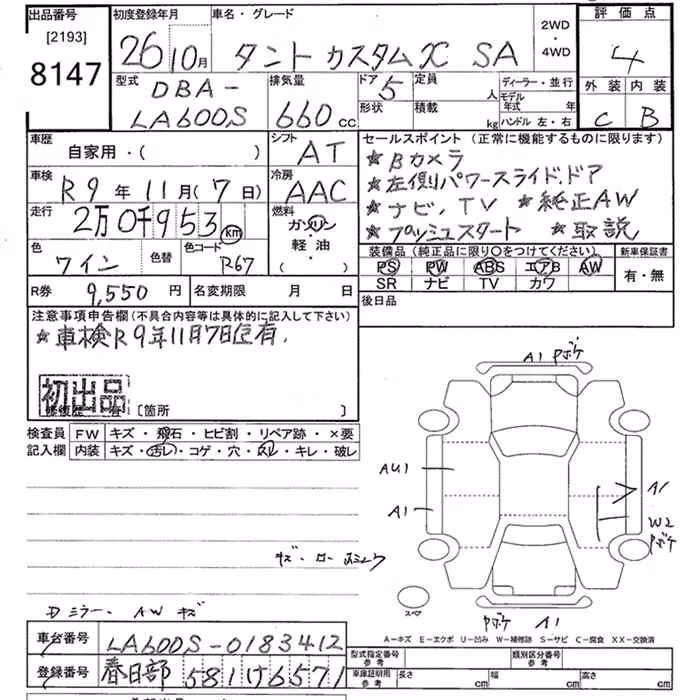 出品番号 初度登録年月 車名・グレード 2WD・4WD 評価点
[2193]
8147 26 10月 タント カスタム X SA 4
型式 排気量 ドア 5 定員 人 ディーラー・並行 外装 内装
DBA-
LA600S 660 cc 形状 積載 kg モデル年式 年 ハンドル 左・右 C B
車歴 シフト セールスポイント (正常に機能するものに限ります)
自家用・( ) AT ★Bカメラ
車検 冷房 ★左側パワースライドドア
R9年 11月 (7日) AAC ★ナビ、TV ★純正AW
走行 2万0千953km 燃料 ガソリン・軽油・( ) ★プッシュスタート ★取説
色 ワイン 色替 色コード R67
装備品 (純正品に限り〇をつけてください。) 新車保証書
PS PW ABS エアB AW 有・無
SR ナビ TV カワ
R券 9,550円 名変期限 月 日 後日品
注意事項申告欄 (不具合内容等は具体的に記入して下さい)
★車検R9年11月7日迄有.
初出品
[箇所 ]
検査員 FW キズ・飛石・ヒビ割・リペア跡・×要
記入欄 内装 キズ・汚レ・コゲ・穴・スレ・キレ・破レ
A1 Pボケ
AU1
A1
A1
W2
Pボケ
スペア
Pボケ A1
Dミラー・AWキズ
A-キズ E-エクボ U-凹み W-補修跡 S-サビ C-腐食 XX-交換済
車台番号 LA600S-0183412 型式指定番号 参考 類別区分番号 参考
登録番号 春日部 581け6571 車庫証明用 参考 長さ cm 幅 cm 高さ cm